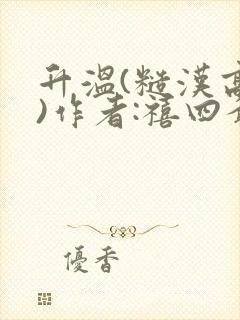 升温(糙漢高
)作者:禧四
優香